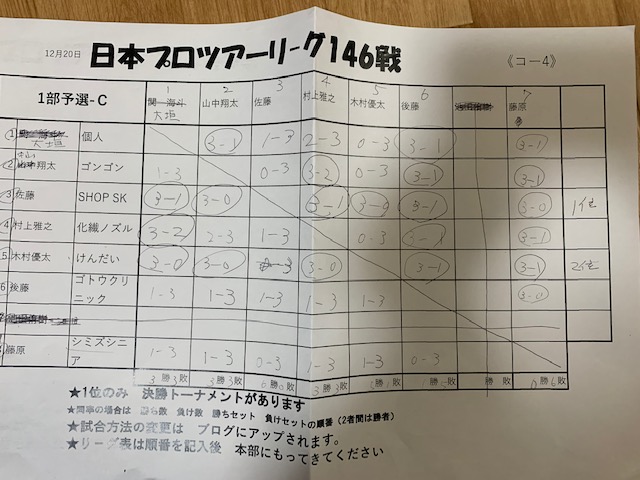 12月20日 日本プロツアーリーグ146戦 《コー4》
1 2 3 4 5 6 7
1部予選-C 大垣 山中翔太 佐藤 村上雅之 木村優太 後藤 藤原
1 大垣 個人 3-1 1-3 2-3 0-3 3-1 3-1
2 翔太 ゴンゴン 1-3 0-3 3-2 0-3 3-1 3-1
3 佐藤 SHOP SK 3-1 3-0 3-1 3-0 3-1 3-0 1位
4 村上雅之 化繊ノズル 3-2 2-3 1-3 0-3 3-1 3-1
5 木村優太 けんだい 3-0 3-0 -3 3-0 3-1 3-1 2位
6 後藤 ゴトウクリニック 1-3 1-3 1-3 1-3 1-3 3-0
藤原 シミズシニア 1-3 1-3 0-3 1-3 1-3 0-3
3勝3敗 3勝3敗 6勝0敗 3勝3敗 勝敗 勝敗 勝敗 0勝6敗
★1位のみ 決勝トーナメントがあります
★同率の場合は 勝ち数 負け数 勝ちセット 負けセットの順番(2者間は勝者)
★試合方法の変更は ブログにアップされます。
★リーグ表は順番を記入後 本部にもってきてください